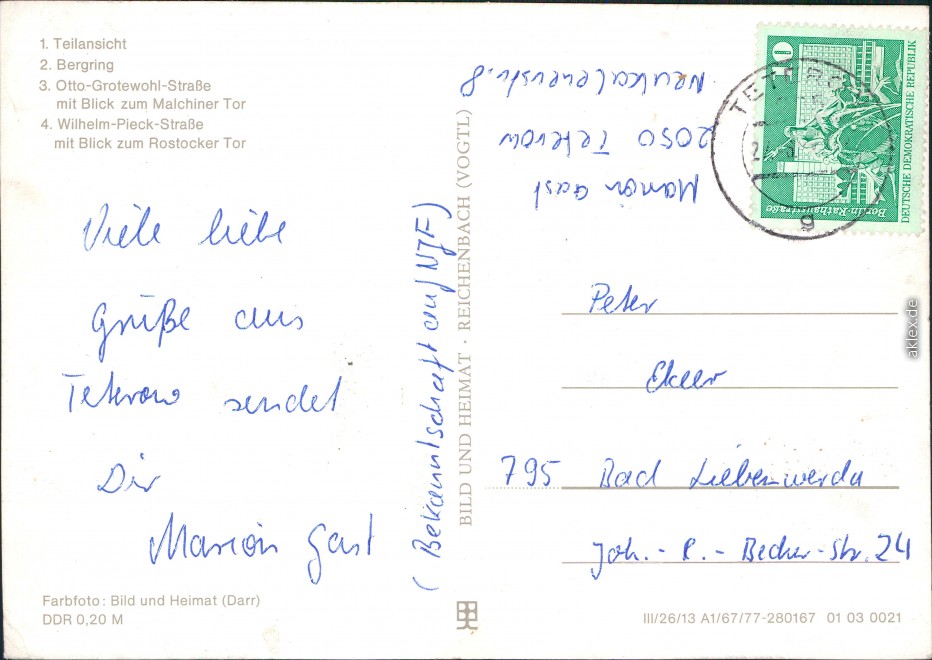 1. Teilansicht
2. Bergring
3. Otto-Grotewohl-Straße
mit Blick zum Malchiner Tor
4. Wilhelm-Pieck-Straße
mit Blick zum Rostocker Tor
Viele liebe
Grüße aus
Teterow sendet
Dir
Marion Gast
(Bekanntschaft auf NJF)
BILD UND HEIMAT · REICHENBACH (VOGTL)
Marion Gast
2050 Teterow
Neukalenerstr. 8
10
Berlin-Rathausstraße
DEUTSCHE DEMOKRATISCHE REPUBLIK
TETEROW
g
Peter
795 Bad Liebenwerda
Joh.-R.-Becher-Str. 24
Farbfoto: Bild und Heimat (Darr)
DDR 0,20 M
III/26/13 A1/67/77-280167 01 03 0021
aklex.de